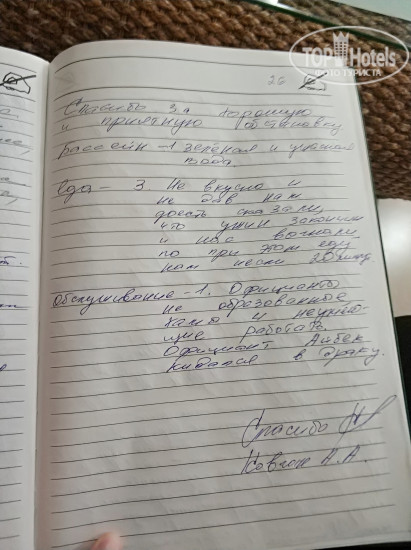 TOPHotels
ФОТО ТУРИСТА
26
Спасибо за хорошую
и приятную обстановку
Бассейн - 1 зелёная и ужасная
вода.
Еда - 3 Не вкусно и
не дав нам
доесть сказали
что ужин закончен
и нас выгнали
но при этом еду
нам несли 30 минут.
Обслуживание - 1. Официанты
не образованное
хамьё и неумею-
щие работать.
Официант Айбек
кидался в драку.
Спасибо
А.А.